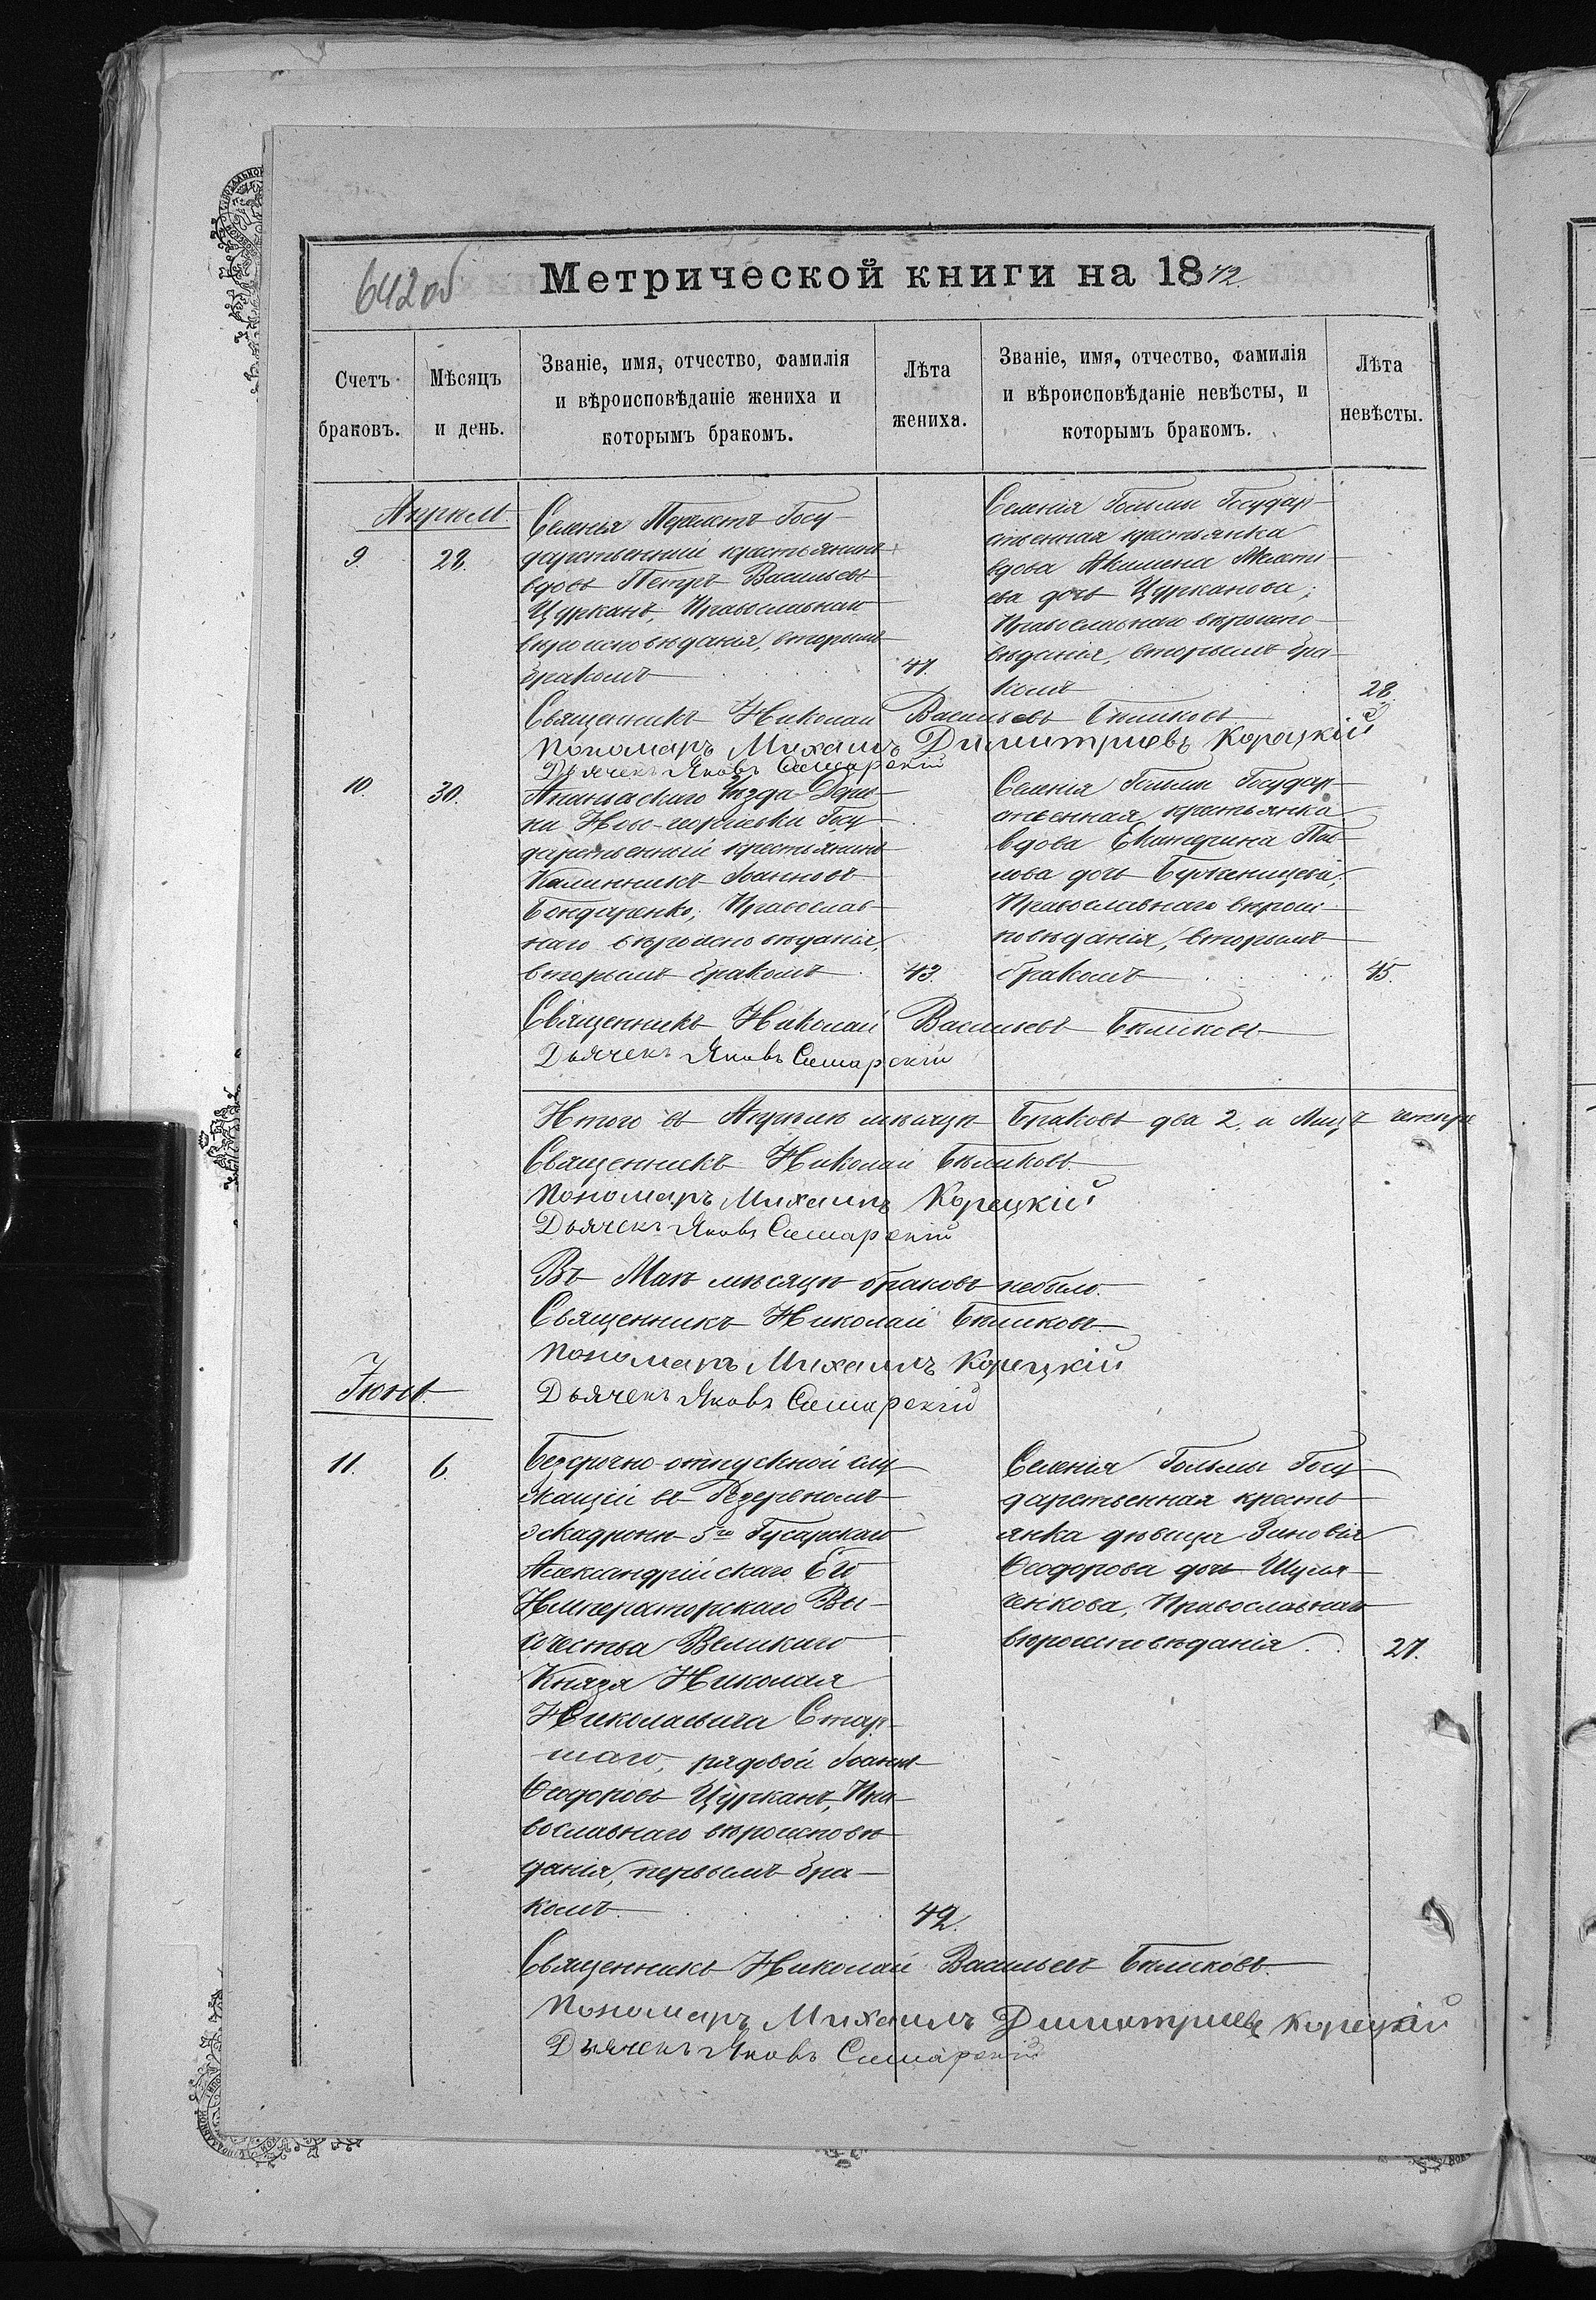 642 об
Метрической книги на 1872.
Счетъ браковъ.
Мѣсяцъ и день.
Званіе, имя, отчество, фамилія и вѣроисповѣданіе жениха и которымъ бракомъ.
Лѣта жениха.
Званіе, имя, отчество, фамилія и вѣроисповѣданіе невѣсты, и которымъ бракомъ.
Лѣта невѣсты.
Апрель
9.
28.
Селенья Госу-
дарственный крестьянинъ
вдовъ Петръ Васильевъ
Цурканъ, Православнаго
вѣроисповѣданія, вторымъ
бракомъ
47.
Селенія Гольмы Государ-
ственная крестьянка
вдова Акилина
ева дочь Цурканова;
Православнаго вѣроиспо-
вѣданія, вторымъ бра-
комъ
28
Священникъ Николай Васильевъ Бѣликовъ
Пономарь Михаилъ Димитріевъ Корецкій
Дьячекъ Яковъ Самарскій
10.
30.
Ананьевскаго Уѣзда Дерев-
ни Ново-георгіевки Госу-
дарственный крестьянинъ
Калинникъ Іоанновъ
Бондаренко, Православ-
наго вѣроисповѣданія,
вторымъ бракомъ
43.
Селенія Гольмы Государ-
ственная крестьянка
вдова Екатерина Пав-
лова дочь
Православнаго вѣроис-
повѣданія, вторымъ
бракомъ
45.
Священникъ Николай Васильевъ Бѣликовъ
Дьячекъ Яковъ Самарскій
Итого въ Апрѣлѣ мѣсяцѣ Браковъ два 2, и Лицъ четыре
Священникъ Николай Бѣликовъ
Пономарь Михаилъ Корецкій
Дьячекъ Яковъ Самарскій
Въ Маѣ мѣсяцѣ браковъ небыло.
Священникъ Николай Бѣликовъ
Пономарь Михаилъ Корецкій
Дьячекъ Яковъ Самарскій
Іюнь
11.
6.
Безсрочно-отпускной слу-
жащій въ Резервномъ
эскадронѣ 5го Гусарскаго
Александрійскаго Его
Императорскаго Вы-
сочества Великаго
Князя Николая
Николаевича Стар-
шаго, рядовой Іоаннъ
Ѳеодоровъ Цурканъ, Пра-
вославнаго вѣроисповѣ-
данія, первымъ бра-
комъ.
42.
Селенія Гольмы Госу-
дарственная кресть-
янка дѣвица Зиновія
Ѳеодорова дочь Шуля-
ченкова, Православнаго
вѣроисповѣданія.
27.
Священникъ Николай Васильевъ Бѣликовъ
Пономарь Михаилъ Димитріевъ Корецкій
Дьячекъ Яковъ Самарскій